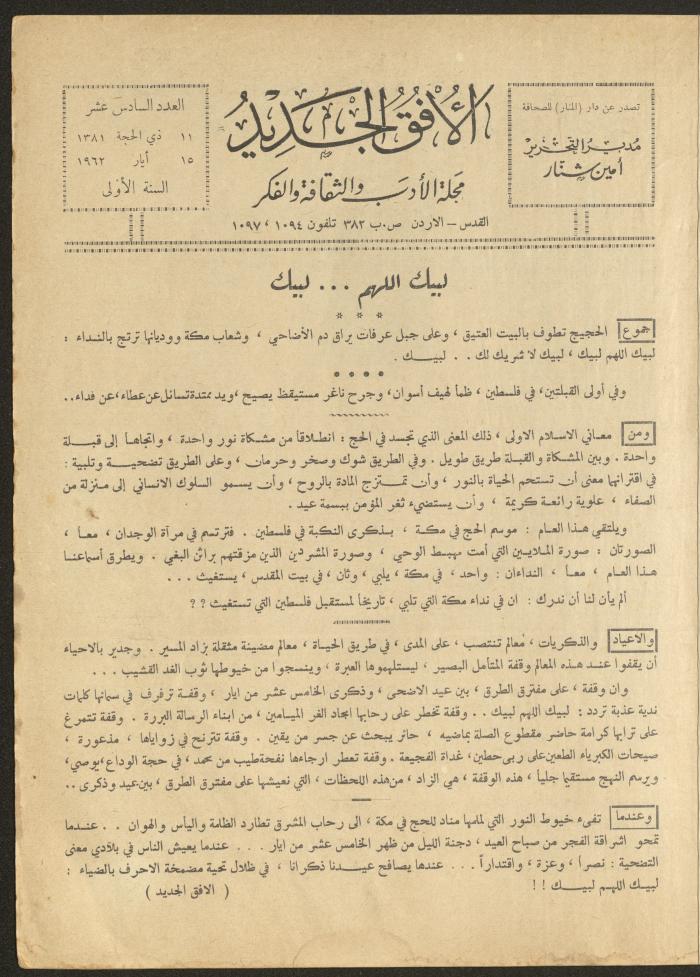 تصدر عن دار (المنار) للصحافة
مدير التحرير
أمين شنار
الأفق الجديد
مجلة الأدب والثقافة والفكر
القدس – الاردن ص.ب ٣٨٢ تلفون ١٠٩٤ ، ١٠٩٧
العدد السادس عشر
١١ ذي الحجة ١٣٨١
١٥ أيار ١٩٦٢
السنة الأولى
لبيك اللهم ... لبيك
* * *
جموع الحجيج تطوف بالبيت العتيق ، وعلى جبل عرفات يراق دم الأضاحي ، وشعاب مكة ووديانها ترتج بالنداء :
لبيك اللهم لبيك ، لبيك لا شريك لك . . لبيـــك .
وفي أولى القبلتين، في فلسطين ، ظمأ لهيف أسوان، وجرح ناغر مستيقظ يصيح ،ويد ممتدة تسائل عن عطاء، عن فداء..
ومن معاني الاسلام الاولى ، ذلك المعنى الذي تجسد في الحج : انطلاقاً من مشكاة نور واحدة . واتجاهاً إلى قبـلة
واحدة . وبين المشكاة والقبلة طريق طويل . وفي الطريق شوك وصخر وحرمان ، وعلى الطريق تضحيـــة وتلبية :
في اقترانهما معنى أن تستحم الحياة بالنور ، وأن تمـــتزج المادة بالروح ، وأن يسمـــو السلوك الانساني إلى منزلة من
الصفاء ، علوية رائعـة كريمة ، وأن يستضيء ثغر المؤمن ببسمة عيد .
ويلتقي هـذا العـام : موسم الحج في مكـة ، بـذكرى النكبة في فلسطين . فترتسم في مرآة الوجدان ، معـاً ،
الصورتان : صورة المـلايـين التي أمت مهبـط الوحي ، وصورة المشردين الذين مزقتهم براثن البغي . ويطرق أسماعنـا
هـذا العـام ، معـاً ، النداءان : واحد ، في مكة ، يلبي ، وثان ، في بيت المقدس ، يستغيث ...
ألم يأن لنا أن ندرك : ان في نداء مكة التي تلبي ، تاريخاً لمستقبل فلسطين التي تستغيث ؟ ؟
والاعياد والذكريات ، معالم تنتصب ، على المدى ، في طريق الحيـاة ، معالم مضيئة مثقلة بزاد المسير . وجدير بالاحياء
أن يقفوا عنـد هـذه المعالم وقفة المتأمل البصير ، ليستلهموها العبرة ، وينسجوا من خيوطها ثوب الغد القشيب ...
وان وقفة ، على مفترق الطرق ، بين عيد الاضحى ، وذكرى الخامس عشر من ايار ، وقفـة ترفرف في سمائها كلمات
ندية عذبة تردد : لبيك اللهم لبيك . . وقفة تخطر على رحابها امجاد الغر الميـامين ، من ابناء الرسالة البررة . وقفة تتمرغ
على ترابها كرامة حاضر مقطوع الصلة بماضيه ، حائر يبحث عن جسر من يقين . وقفة تترنح في زواياها ، مذعورة ،
صيحات الكبرياء الطعين على ربى حطين، غداة الفجيعة . وقفة تعطر ارجاءها نفحة طيب من محمد ، في حجة الوداع ،يوصي،
ويرسم النهج مستقيماً جلياً ، هذه الوقفة ، هي الزاد ، من هذه اللحظات ، التي نعيشها على مفترق الطرق ، بين عيد وذكرى ..
وعندما تفيء خيوط النور التي لملمها مناد للحج في مكة ، الى رحاب المشرق تطارد الظلمة واليأس والهوان . . عنـدما
تمحو اشراقة الفجر من صباح العيد ، دجنة الليل من ظهر الخامس عشر من ايار . . . عندما يعيش الناس في بلادي معنى
التضحية : نصراً ، وعزة ، واقتداراً . . . عندها يصافح عيـدنا ذكرانا ، في ظلال تحية مضمخة الاحرف بالضياء :
لبيك اللهم لبيـــك ! !
( الافق الجديد )